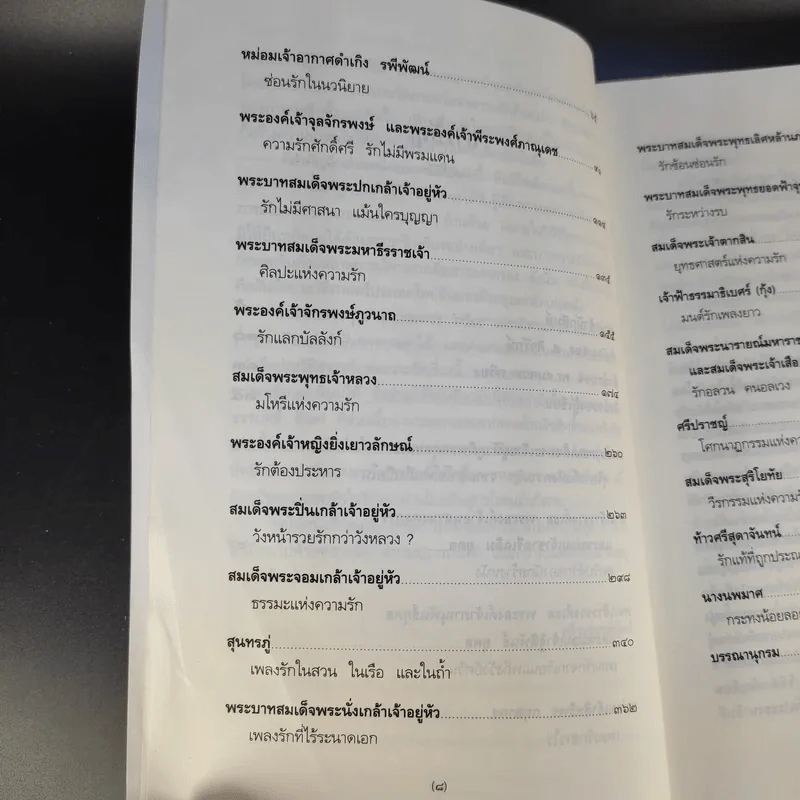 หม่อมเจ้าอากาศดำเกิง รพีพัฒน์
ซ่อนรักในนวนิยาย
พระองค์เจ้าจุลจักรพงษ์ และพระองค์เจ้าพีระพงศ์ภาณุเดช
ความรักศักดิ์ศรี รักไม่มีพรมแดน
พระบาทสมเด็จพระปกเกล้าเจ้าอยู่หัว
รักไม่มีศาสนา แม้นใครบุญญา
พระบาทสมเด็จพระมหาธีรราชเจ้า ๑๓๕
ศิลปะแห่งความรัก
พระองค์เจ้าจักรพงษ์ภูวนาถ ๑๕๕
รักแลกบัลลังก์
สมเด็จพระพุทธเจ้าหลวง ๑๗๔
มโหรีแห่งความรัก
พระองค์เจ้าหญิงยิ่งเยาวลักษณ์ ๒๖๐
รักต้องประหาร
สมเด็จพระปิ่นเกล้าเจ้าอยู่หัว ๒๖๓
วังหน้ารวยรักกว่าวังหลวง ?
สมเด็จพระจอมเกล้าเจ้าอยู่หัว ๒๙๘
ธรรมะแห่งความรัก
สุนทรภู่ ๓๔๐
เพลงรักในสวน ในเรือ และในถ้ำ
พระบาทสมเด็จพระนั่งเกล้าเจ้าอยู่หัว ๓๖๒
เพลงรักที่ไร้ระนาดเอก
(๘)
พระบาทสมเด็จพระพุทธเลิศหล้านภ
รักซ้อนซ่อนรัก
พระบาทสมเด็จพระพุทธยอดฟ้าจุ
รักระหว่างรบ
สมเด็จพระเจ้าตากสิน
ยุทธศาสตร์แห่งความรัก
เจ้าฟ้าธรรมาธิเบศร์ (กุ้ง)
มนต์รักเพลงยาว
สมเด็จพระนารายณ์มหาราช
และสมเด็จพระเจ้าเสือ
รักอลวน คนอลเวง
ศรีปราชญ์
โศกนาฏกรรมแห่งคว
สมเด็จพระสุริโยทัย
วีรกรรมแห่งความ
ท้าวศรีสุดาจันทน์
รักแท้ที่ถูกประณ
นางนพมาศ
กระทงน้อยลอย
บรรณานุกรม